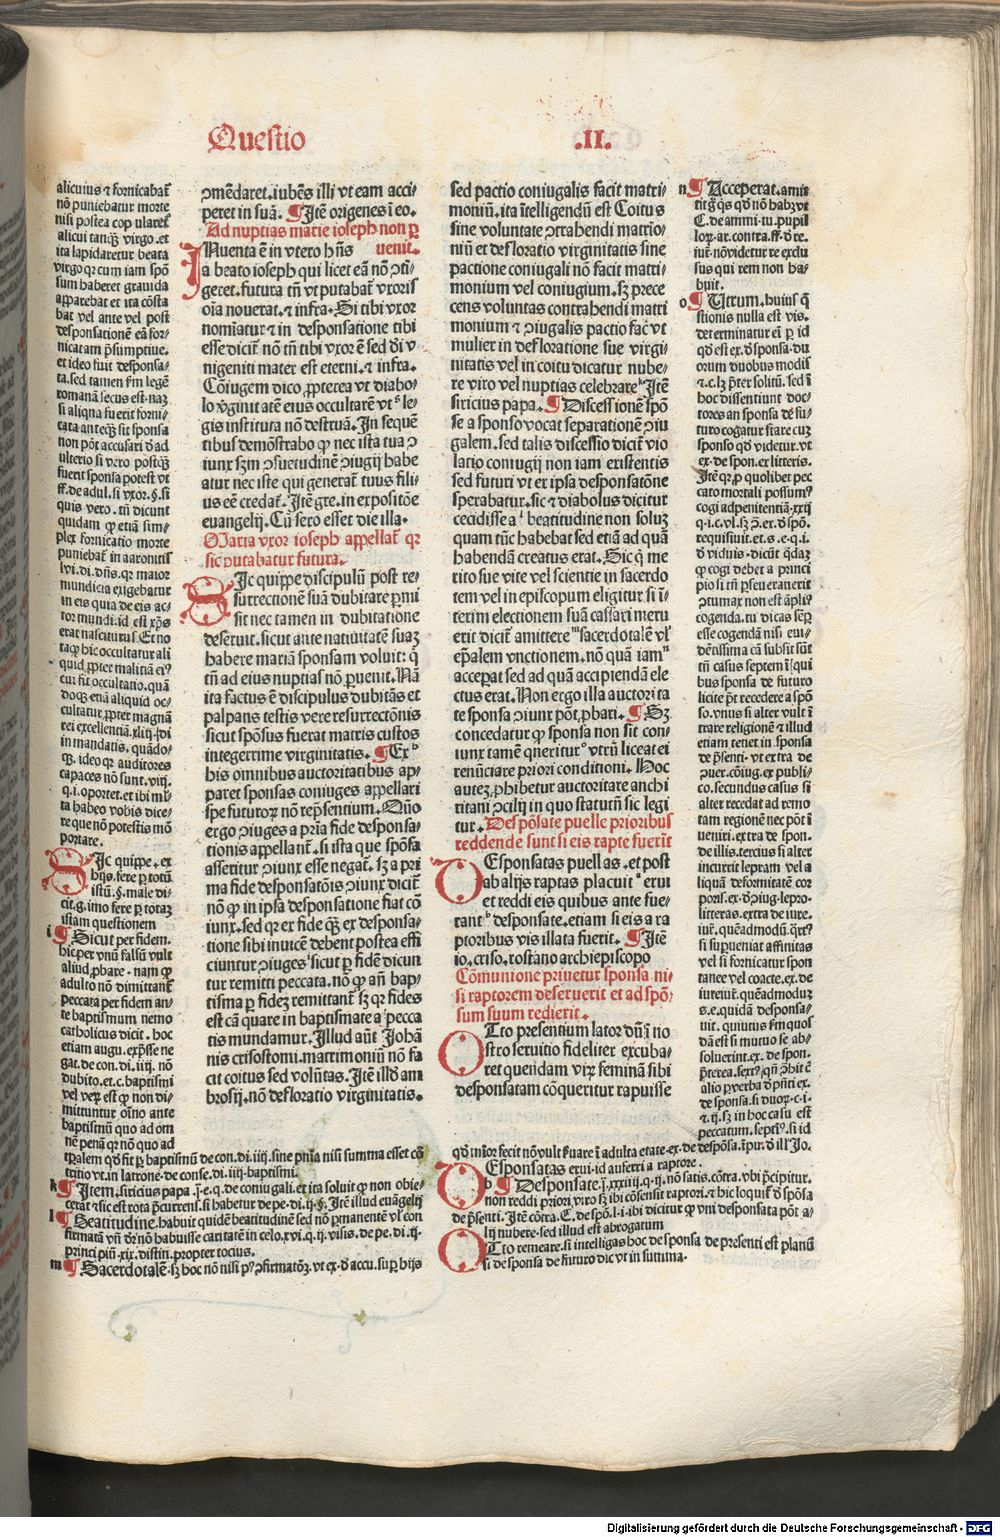 Questio .II.
alicuius ⁊ fornicabat̃
nõ puniebatur morte
nisi postea cop ularet̃
alicui tanq̃ʒ virgo. et
ita lapidaretur beata
virgo qꝛ cum iam spõ
sum haberet grauida
apparebat et ita cõsta
bat vel ante vel post
desponsationẽ eã for-
nicatam p̃sumptiue.
et ideo fuit desponsa-
ta. sed tamen ẜm legẽ
romanã secus est. naʒ
si aliqua fuerit forni-
cata anteq̃ʒ sit sponsa
non põt accusari ð ad
ulterio si vero postq̃ʒ
fuerit sponsa potest vt
ff. de adul. si vxor. §. si
quis vero. tũ dicunt
quidam ꝙ etiã sim-
plex fornicatio morte
puniebat̃ in aaronitis
lvi. di. dñs. qꝛ maior
mundicia exigebatur
in eis quia de eis ac-
tor mundi. id est xp̃s
erat nasciturus. Et no
ta ꝙ hic occultatur ali
quid ꝓpter malitiã eiꝰ
cui fit occultatio. quã
doqʒ etiã aliquid oc-
cultatur ꝓpter magnã
rei excellentiã. xliij. di
in mandatis. quãdo-
qʒ. ideo qꝛ auditores
capaces nõ sunt. viij.
q. i. oportet. et ibi ml̃
ta habeo vobis dice-
re que nõ potestis mõ
portare.
SIc quippe. ex
hijs. fere ꝑ totũ
istũ. §. male di-
cit. g. imo fere ꝑ totaʒ
istam questionem
i ¶ Sicut per fidem.
hic per vnũ falsũ vult
aliud ꝓbare. nam ꝙ
adulto nõ dimittant̃
peccata per fidem an-
te baptismum nemo
catholicus dicit. hoc
etiam augu. exp̃sse ne
gat. de con. di. iiij. nõ
dubito. et. c. baptismi
vel veꝝ est ꝙ non di-
mittuntur oĩno ante
baptismũ quo ad om
nẽ penã qꝛ nõ quo ad
ꝯmẽdaret. iubẽs illi vt eam acci-
peret in suã. ¶ Itẽ origenes i eo.
Ad nuptias marie ioseph non ꝑ
uenit.
INuenta ẽ in vtero hñs
a beato ioseph qui licet eã nõ ꝯti-
geret. futura tñ vt putabat̃ vxoris
oĩa nouerat. ⁊ infra. Si tibi vxor
nomĩatur ⁊ in desponsatione tibi
esse dicit̃ nõ tñ tibi vxor ẽ sed ði v
nigeniti mater est eterni. ⁊ infra.
Cõiugem dico ꝓpterea vt diabo-
lo v̾ginit atẽ eius occultarẽ vt le-
gis institura nõ destruã. In sequẽ
tibus demõstrabo ꝙ nec ista tua ꝯ
iunx ẜm ꝯsuetudinẽ ꝯiugij habe
atur nec iste qui generat̃ tuus fili-
us eẽ credat̃. Itẽ gre. in expositõe
euangelij. Cũ sero esset die illa.
Maria vxor ioseph appellat̃ qꝛ
sic putabatur futura.
SIc quippe discipulũ post re-
surrectionẽ suã dubitare ꝑmi
sit nec tamen in dubitatione
deseruit. sicut ante natiuitatẽ suaʒ
habere mariã sponsam voluit: q̃
tñ ad eius nuptias nõ ꝑuenit. Nã
ita factus ẽ discipulus dubitãs et
palpans testis vere resurrectõnis
sicut spõsus fuerat matris custos
integerrime virginitatis. ¶ Ex
his omnibus auctoritatibus ap-
paret sponsas coniuges appellari
spe futuroꝝ nõ re p̃sentium. Qũo
ergo ꝯiuges a prĩa fide desponsa-
tionis appellant̃. si ista que spõsa
asseritur ꝯiunx esse negat̃. Sʒ a pri
ma fide desponsatõis ꝯiunx dicit̃
nõ ꝙ in ipsa desponsatione fiat cõ
iunx. sed qꝛ ex fide q̃ʒ ex desponsa-
tione sibi inuicẽ debent postea effi
ciuntur ꝯiuges sicut ꝑ fidẽ dicun
tur remitti peccata. nõ ꝙ añ bap-
tisma ꝑ fideʒ remittant̃ sʒ qꝛ fides
est cã quare in baptismate a pecca
tis mundamur. Illud aũt Johã
nis crisostomi. matrimoniũ nõ fa
cit coitus sed volũtas. Itẽ illð am
brosij. nõ defloratio virginitatis.
sed pactio coniugalis facit matri-
moniũ. ita ĩtelligendũ est Coitus
sine voluntate ꝯtrahendi matrio-
niũ et defloratio virginitatis sine
pactione coniugali nõ facit matri-
monium vel coniugium. sʒ prece
cens voluntas contrahendi matri
monium ⁊ ꝯiugalis pactio fac̃ vt
mulier in defloratione sue virgi-
nitatis vel in coitu dicatur nube-
re viro vel nuptias celebrare Itẽ
siricius papa. ¶ Discess ionẽ spõ
se a sponso vocat separationẽ ꝯiu
galem. sed talis discessio dicit̃ vio
latio coniugij non iam existentis
sed futuri vt ex ipsa desponsatõne
sperabatur. sic ⁊ diabolus dicitur
cecidisse a beatitudine non soluʒ
quam tũc habebat sed etiã ad quã
habendã creatus erat. Sic q̃ me
rito sue vite vel scientie in sacerdo
tem vel in episcopum eligitur si ĩ-
terim electionem suã cassari meru
erit dicit̃ amittere sacerdotalẽ vl̾
ep̃alem vnctionem. nõ quã iam
acceꝑat sed ad quã accipiendã ele
ctus erat. Non ergo illa auctori ta
te sponsa ꝯiunx põt ꝓbari. ¶ Sʒ
concedatur ꝙ sponsa non sit con-
iunx tamẽ queritur vtrũ liceat ei
renũciare priori conditioni. Hoc
auteʒ ꝓhibetur auctoritate anchi
ritani ꝯcilij in quo statutũ sic legi
tur. Despõsate puelle prioribus
reddende sunt si eis rapte fuerit
DEsponsatas puellas. et post
ab alijs raptas placuit erui
et reddi eis quibus ante fue-
rant desponsate. etiam si eis a ra
ptoribus vis illata fuerit. ¶ Itẽ
io. criso. rostano archiepiscopo
Cõmunione priuetur sponsa ni-
si raptorem deseruerit et ad spõ-
sum suum redierit.
OTto presentium lator dũ ĩ no
stro seruitio fideliter excuba-
ret quendam viꝝ feminã sibi
desponsatam cõqueritur rapuisse
n ¶ Acceperat. amit
tit g̃ qs qð nõ habʒ vt
C. de ammi. tu. pupil
loꝝ. ar. contra. ff. ð re.
iur. nõ videtur re exclu
sus qui rem non ha-
buit.
o ¶ Utrum. huius q̃
stionis nulla est vis.
determinatur eĩ ꝑ id
qð est ex. ð sponsa. du
orum duobus modis
⁊. c. lʒ p̃ter solitũ. sed ĩ
hoc dissentiunt doc-
tores an sponsa dẽ fu-
turo cogatur stare cuʒ
sponso qð videtur. vt
ex. de spon. ex litteris.
Itẽ qꝛ ꝓ quolibet pec
cato mortali possumꝰ
cogi ad penitentiã. xxij
q. i. c. vl. sʒ ꝯ̃. ex. ð spõ.
requisiuit. et. s. e. q. i.
ð viduis. dicũt q̃daʒ
ꝙ cogi debet a princi
pio si tñ ꝑseueranerit
ꝯtumax non est ãpliꝰ
cogenda. tu dicas sẽꝑ
esse cogendã nisi eui-
dẽtissima cã subsit sũt
tñ casus septem ĩ qui
bus sponsa de futuro
licite p̃t recedere a spõ
so. vnus si alter vult ĩ
trare religionẽ ⁊ illud
etiam tenet in sponsa
de p̃senti. vt extra de
ꝯuer. cõiug. ex publi-
co. secundus casus si
alter recedat ad remo
tam regionẽ nec põt ĩ
ueniri. extra de spon.
de illis. tercius si alter
incurrit lepram vel a
liquã deformitatẽ cor
poris. ex. ð ꝯiug. lepro.
litteras. extra de iure.
iur. quẽadmodũ. q̃rtꝰ
si suꝑueniat affinitas
vel si fornicatur spon
tanee vel coacte. ex. de
iureiur̃. quẽadmoduʒ
s. e. quidã desponsa-
uit. quiutus ẜm quos
dã est si mutuo se ab-
soluerint. ex. de spon.
p̃terea. sextꝰ. qñ ꝯ̃hit ẽ
alio ꝑ verba ð p̃nti ex.
de sponsa. si duoꝝ. c. i.
⁊ ij. sʒ in hoc casu est
peccatum. septĩꝰ. si id
tꝑalem qð fit ꝑ baptismũ de con. di. iiij. sine pñia nisi summa esset cõ
tritio vt. in latrone. de conse. di. iiij. baptismi.
k ¶ Item. siricius papa. j. e. q. de coniugali. et ita soluit ꝙ non obie-
cerat ⁊ sic est rota p̃current̃. si habetur de pe. di. ij. §. Itẽ illud euãgelij
l ¶ Beatitudine. habuit quidẽ beatitudinẽ sed nõ ꝑmanentẽ vl̾ con
firmatã vñ ðr nõ habuisse caritatẽ in celo. xvi. q. ij. visis. de pe. di. ij.
princi piũ. xix. distin. propter tocius.
m ¶ Sacerdotalẽ. sʒ hoc nõ nisi pꝰ ꝯfirmatõʒ. vt ex. ð accu. suꝑ hijs
qð mĩor fecit nõ vult ẜuare ĩ adulta etate. ex. de despõsa. ĩpu̾. ð ill̾ Jo.
DEsponsatas erui. id auferri a raptore.
b ¶ Desponsate. j. xxxiij. q. ij. nõ satis. cõtra. vbi p̃cipitur.
non reddi priori viro sʒ ibi cõsensit raptori. ⁊ hic loquit̃ ð spõsa
de p̃senti. Itẽ cõtra. C. de spõ. l. i. ibi dicitur ꝙ vni desponsata põt a-
lij nubere. sed illud est abrogatum
OTto remeare. si intelligas hoc de sponsa de presenti est planũ
si de sponsa de futuro dic vt in summa.
Digitalisierung gefördert durch die Deutsche Forschungsgemeinschaft - DFG